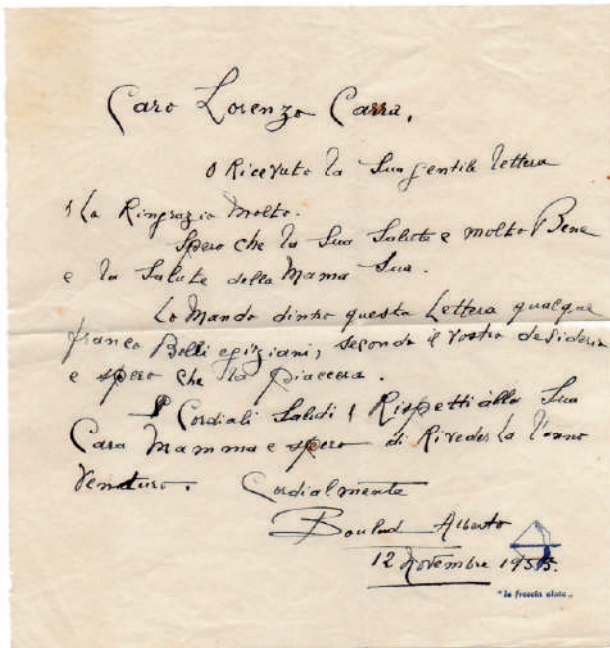 Caro Lorenzo Carra,
O Ricevuto la Sua gentile lettera
e La Ringrazio Molto.
Spero che la Sua Salute e molto Bene
e la Salute della Mama Sua.
Lo Mando dintro questa Lettera qualque
franco Bolli egiziani, secondo il vostro desiderio
e spero che la piaccera.
Cordiali Saludi e Rispetti alla Sua
Cara Mamma e spero di Riveder La l'anno
Venturo. Cordialmente
Boulad Alberto
12 Novembre 1955.
"la freccia alata„